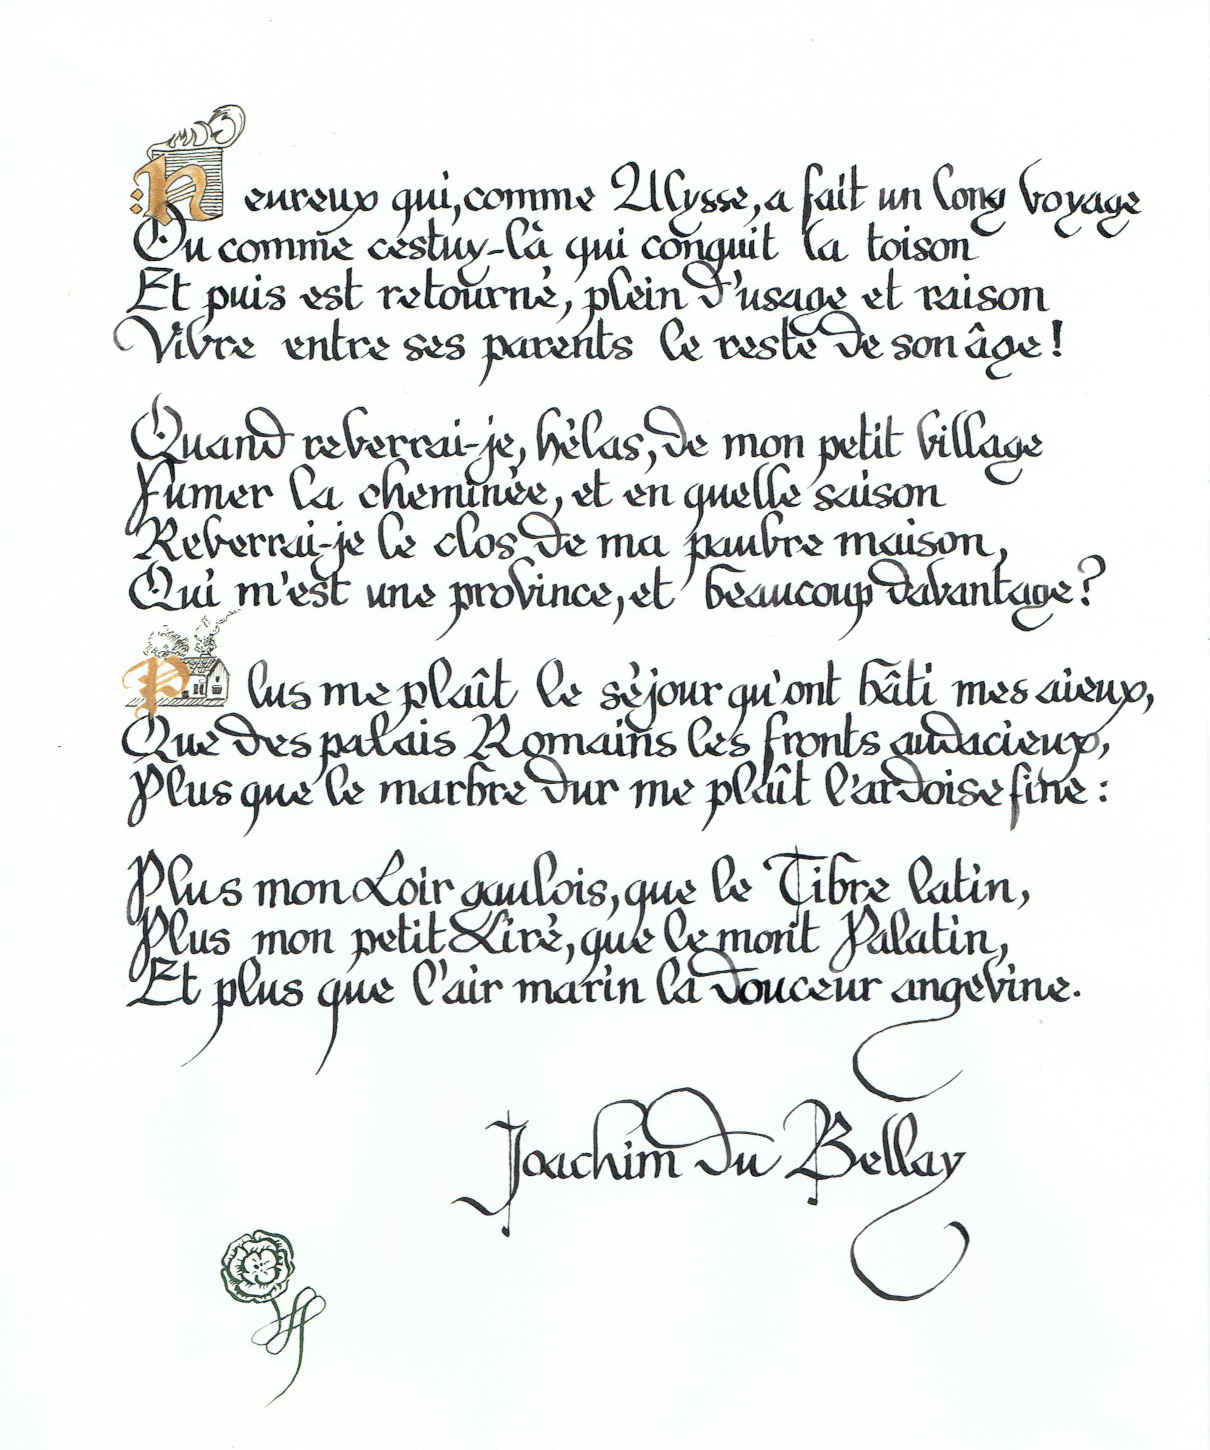 Heureux qui, comme Ulysse, a fait un long voyage
Ou comme cestuy-là qui conquit la toison
Et puis est retourné, plein d'usage et raison
Vivre entre ses parents le reste de son âge !
Quand reverrai-je, hélas, de mon petit village
Fumer la cheminée, et en quelle saison
Reverrai-je le clos de ma pauvre maison,
Qui m'est une province, et beaucoup davantage ?
Plus me plaît le séjour qu'ont bâti mes aieux,
Que des palais Romains les fronts audacieux,
Plus que le marbre dur me plaît l'ardoise fine :
Plus mon Loir gaulois, que le Tibre latin,
Plus mon petit Liré, que le mont Palatin,
Et plus que l'air marin la douceur angevine.
Joachim du Bellay